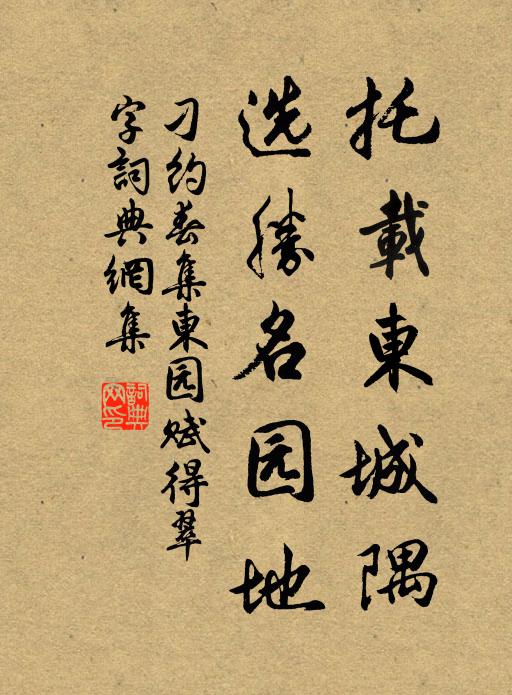 托載東城隅
选勝名园地
刁約春集東园赋得翠
字詞典網集
詞典网印